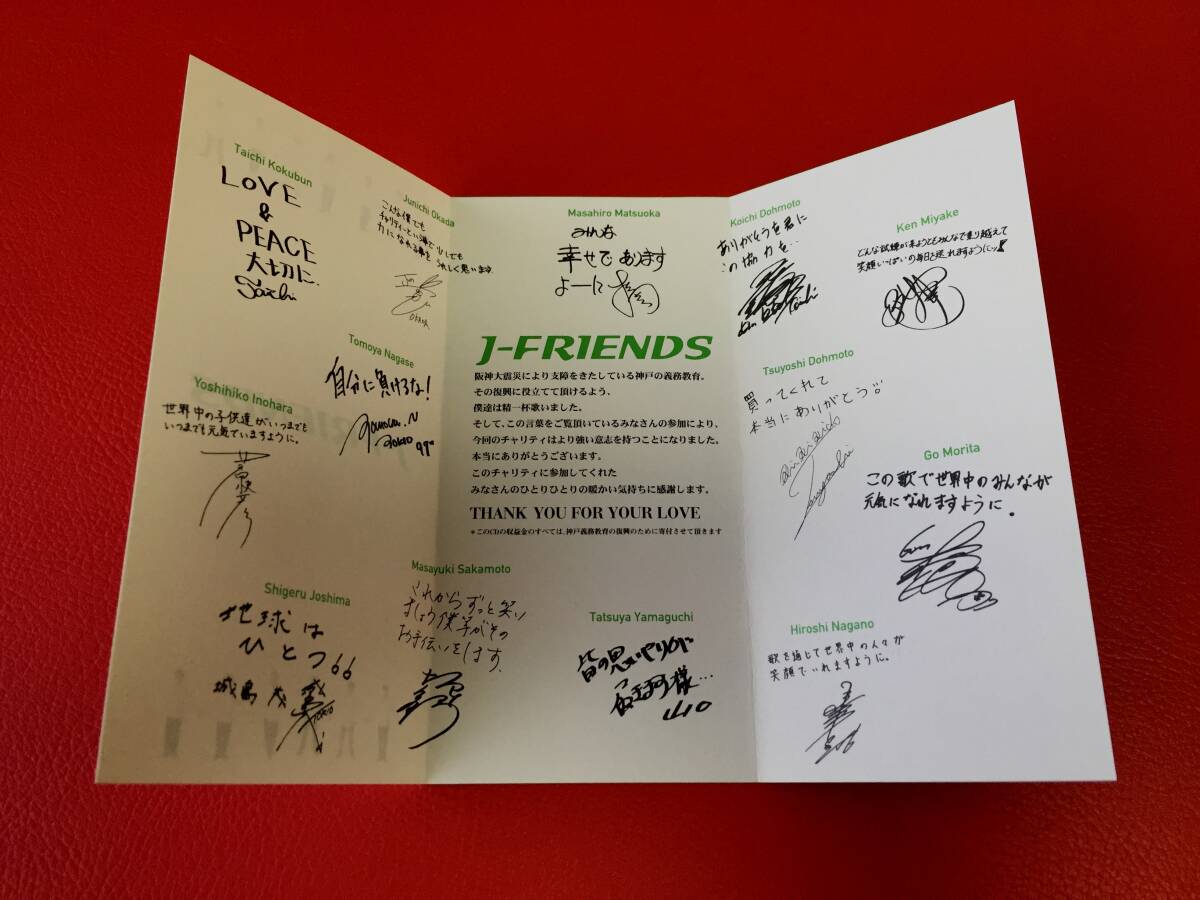 Taichi Kokubun
LOVE
&
PEACE
大切に.
Taichi
Junichi Okada
こんな僕でも
チャリティーという事で少しでも
力になれる事を うれしく思います.
OKADA
Tomoya Nagase
自分に負けるな!
TOKIO 97"
Yoshihiko Inohara
世界中の子供達がいつまでも
いつまでも元気でいますように。
Shigeru Joshima
地球は
ひとつ
城島 茂
TOKIO
Masahiro Matsuoka
みんな
幸せであります
よーに
J-FRIENDS
阪神大震災により支障をきたしている神戸の義務教育。
その復興に役立てて頂けるよう、
僕達は精一杯歌いました。
そして、この言葉をご覧頂いているみなさんの参加により、
今回のチャリティはより強い意志を持つことになりました。
本当にありがとうございます。
このチャリティに参加してくれた
みなさんのひとりひとりの暖かい気持ちに感謝します。
THANK YOU FOR YOUR LOVE
*このCDの収益金のすべては、神戸義務教育の復興のために寄付させて頂きます
Masayuki Sakamoto
これからずっと笑い
ましょう僕等がその
お手伝いをします.
Tatsuya Yamaguchi
皆の思いやりが
山口
Koichi Dohmoto
ありがとうを君に
この協力を..
Ken Miyake
どんな試練が来ようともみんなで乗り越えて
笑顔いっぱいの毎日を送れますようにッ!
Tsuyoshi Dohmoto
買ってくれて
本当にありがとう
Go Morita
この歌で世界中のみんなが
元気になれますように.
Hiroshi Nagano
歌を通じて世界中の人々が
笑顔でいれますように。